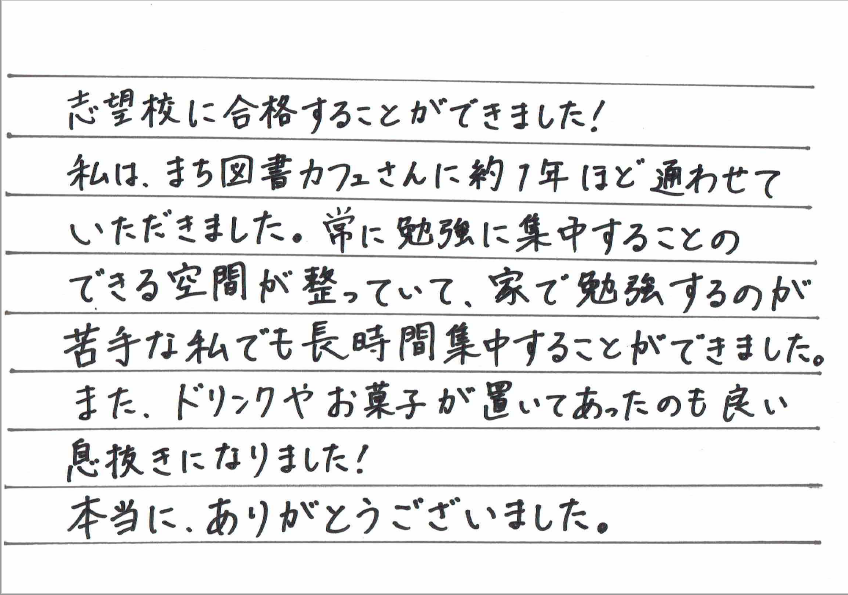 志望校に合格することができました!
私は、まち図書カフェさんに約1年ほど通わせて
いただきました。常に勉強に集中することの
できる空間が整っていて、家で勉強するのが
苦手な私でも長時間集中することができました。
また、ドリンクやお菓子が置いてあったのも良い
息抜きになりました!
本当に、ありがとうございました。